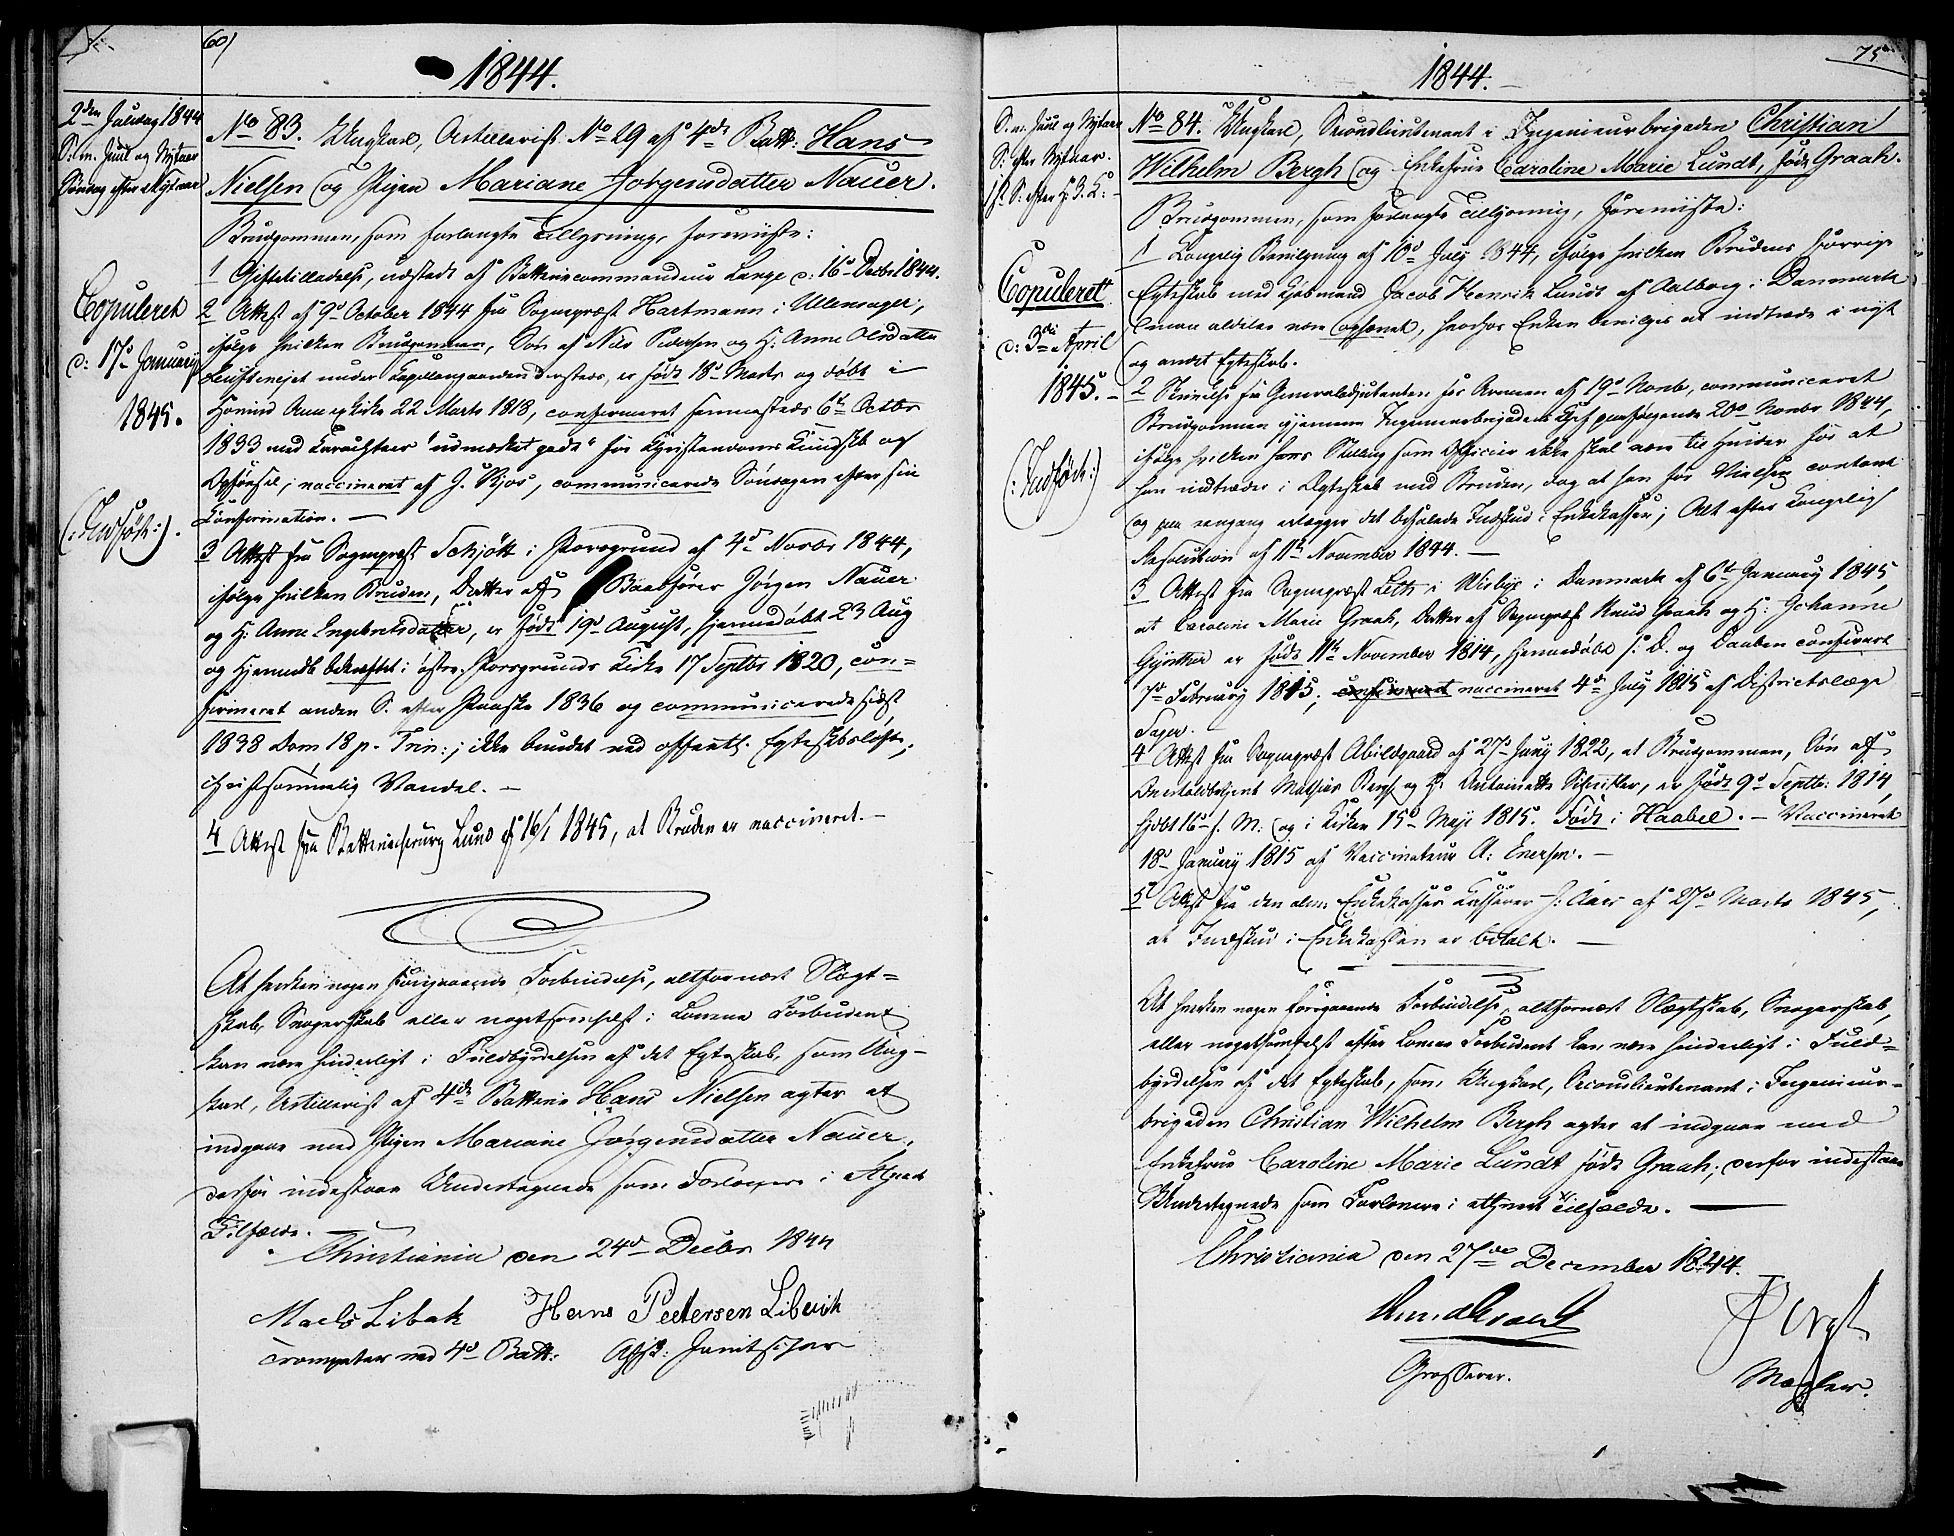 60)
1844.
2den Juledag 1844
S. m. Juul og Nytaar
Søndag efter Nytaar
Copuleret
d: 17de Januarij
1845.
(:Indført:).
No 83. Ungkarl, Artillerist No 29 af 4de Batt: Hans
Nielsen og Pigen Mariane Jørgensdatter Nauer.
Brudgommen, som forlangte Tillysning, foreviiste:
1 Giftetilladelse, udstedt af Battericommandeur Lange d: 16de Decbr 1844.
2 Attest af 9de October 1844 fra Sognepræst Hartmann i Ullensager,
ifølge hvilken Brudgommen, Søn af Nils Pedersen og H: Anne Olsdatter
under Capellangaarden dersteds, er født 18de Marts og døbt i
Hovind Annexkirke 22 Marts 1818, confirmeret sammesteds 6te Octbr
1833 med Karakteer "udmærket godt" for Christendoms Kundskab og
Opførsel; vaccineret af J. Kjos, communicerede Søndagen efter sin
Confirmation. —
3 Attest fra Sognepræst Schjøtt i Porsgrund af 4de Novbr 1844,
ifølge hvilken Bruden, Datter af Baadfører Jørgen Nauer
og H: Anne Engebretsdatter, er født 19de August, hjemmedøbt 23 Aug
og Hjemmedb bekræftet i østre Porsgrunds Kirke 17 Septbr 1820, con-
firmeret anden S. efter Paaske 1836 og communicerede sidst
1838 Dom 18 p. Trin:; ikke bundet ved offentl. Egteskabsløfte;
christsømmelig Vandel. —
4 Attest fra Batterichirurg Lund af 16/1 1845, at Bruden er vaccineret. —
At hverken nogen foregaaende Forbindelse, altfornært Slægt-
skab, Svogerskab eller nogetsomhelst i Lovene Forbudent
kan være hinderligt i Fuldbyrdelsen af det Egteskab, som Ung-
karl, Artillerist af 4de Batterie Hans Nielsen agter at
indgaae med Pigen Mariane Jørgensdatter Nauer,
derfor indestaae Undertegnede som Forlovere i Alskens
Tilfælde.
Christiania den 24de Decbr 1844
Mads Libak Hans Pettersen Liberik
Trompeter ved 4de Batt: Afsk: Janitschar
75
1844.
S. m. Juul og Nytaar
S: efter Nytaar.
1ste S: efter H. 3. K: -
Copuleret
d: 3die April
1845. -
(:Indført:)
No 84. Ungkarl, Secondlieutenant i Ingenieurbrigaden Christian
Wilhelm Bergh og Enkefrue Caroline Marie Lundt, født Graah.
Brudgommen, som forlangte Tillysning, foreviiste:
1 Kongelig Bevilgning af 10de July 1844, ifølge hvilken Brudens forrige
Egteskab med Kjøbmand Jacob Henrik Lundt af Aalborg i Danmark
være ophævet, hvorfor Enken bevilges at indtræde i nyt
og andet Egteskab.
2 Skrivelse fra Generaladjutanten for Armeen af 19de Novb, communiceret
Brudgommen igjennem Ingenieurbrigadens Chef paafølgende 20de Novbr 1844,
ifølge hvilken hans Stilling som Officier ikke skal være til Hinder for at
han indtræder i Egteskab med Bruden, dog at han før Vielsen contant
og paa eengang erlægger det befalede Indskud i Enkekassen; Alt efter Kongelig
Resolution af 11te November 1844. —
3 Attest fra Sognepræst Leth i Wisbye i Danmark af 6te January 1845,
at Caroline Marie Graah, Datter af Sognepræst Knud Graah og H: Johanne
Gynther er født 11te November 1814, hjemmedøbt s: D. og Daaben confirmeret
7de February 1815; confirmeret vaccineret 4de July 1815 af Districtslæge
4 Attest fra Sognepræst Abildgaard af 27de Juny 1822, at Brudgommen, Søn af
Mathias Bergh og H: Antoinette, er født 9de Septbr: 1814,
hjdbt 16de s. M. og i Kirken 15de Maji 1815. Født i Haabel. — Vaccineret
18de January 1815 af Vaccinateur A: Enersen. —
5 Attest fra den alm: Enkekasses Kasserer H: Aars af 27de Marts 1845,
at Indskud i Enkekassen er betalt. —
At hverken nogen foregaaende Forbindelse, altfornært Slægtskab, Svogerskab,
eller nogetsomhelst efter Lovene Forbudent kan være hinderligt i Fuld-
byrdelsen af det Egteskab, som Ungkarl, Secondlieutenant i Ingenieur-
brigaden Christian Wilhelm Bergh agter at indgaae med
Enkefrue Caroline Marie Lundt født Graah; derfor indestaae
Undertegnede som Forlovere i ethvert Tilfælde. —
Christiania den 27de December 1844.
Grosserer.
Mægler.